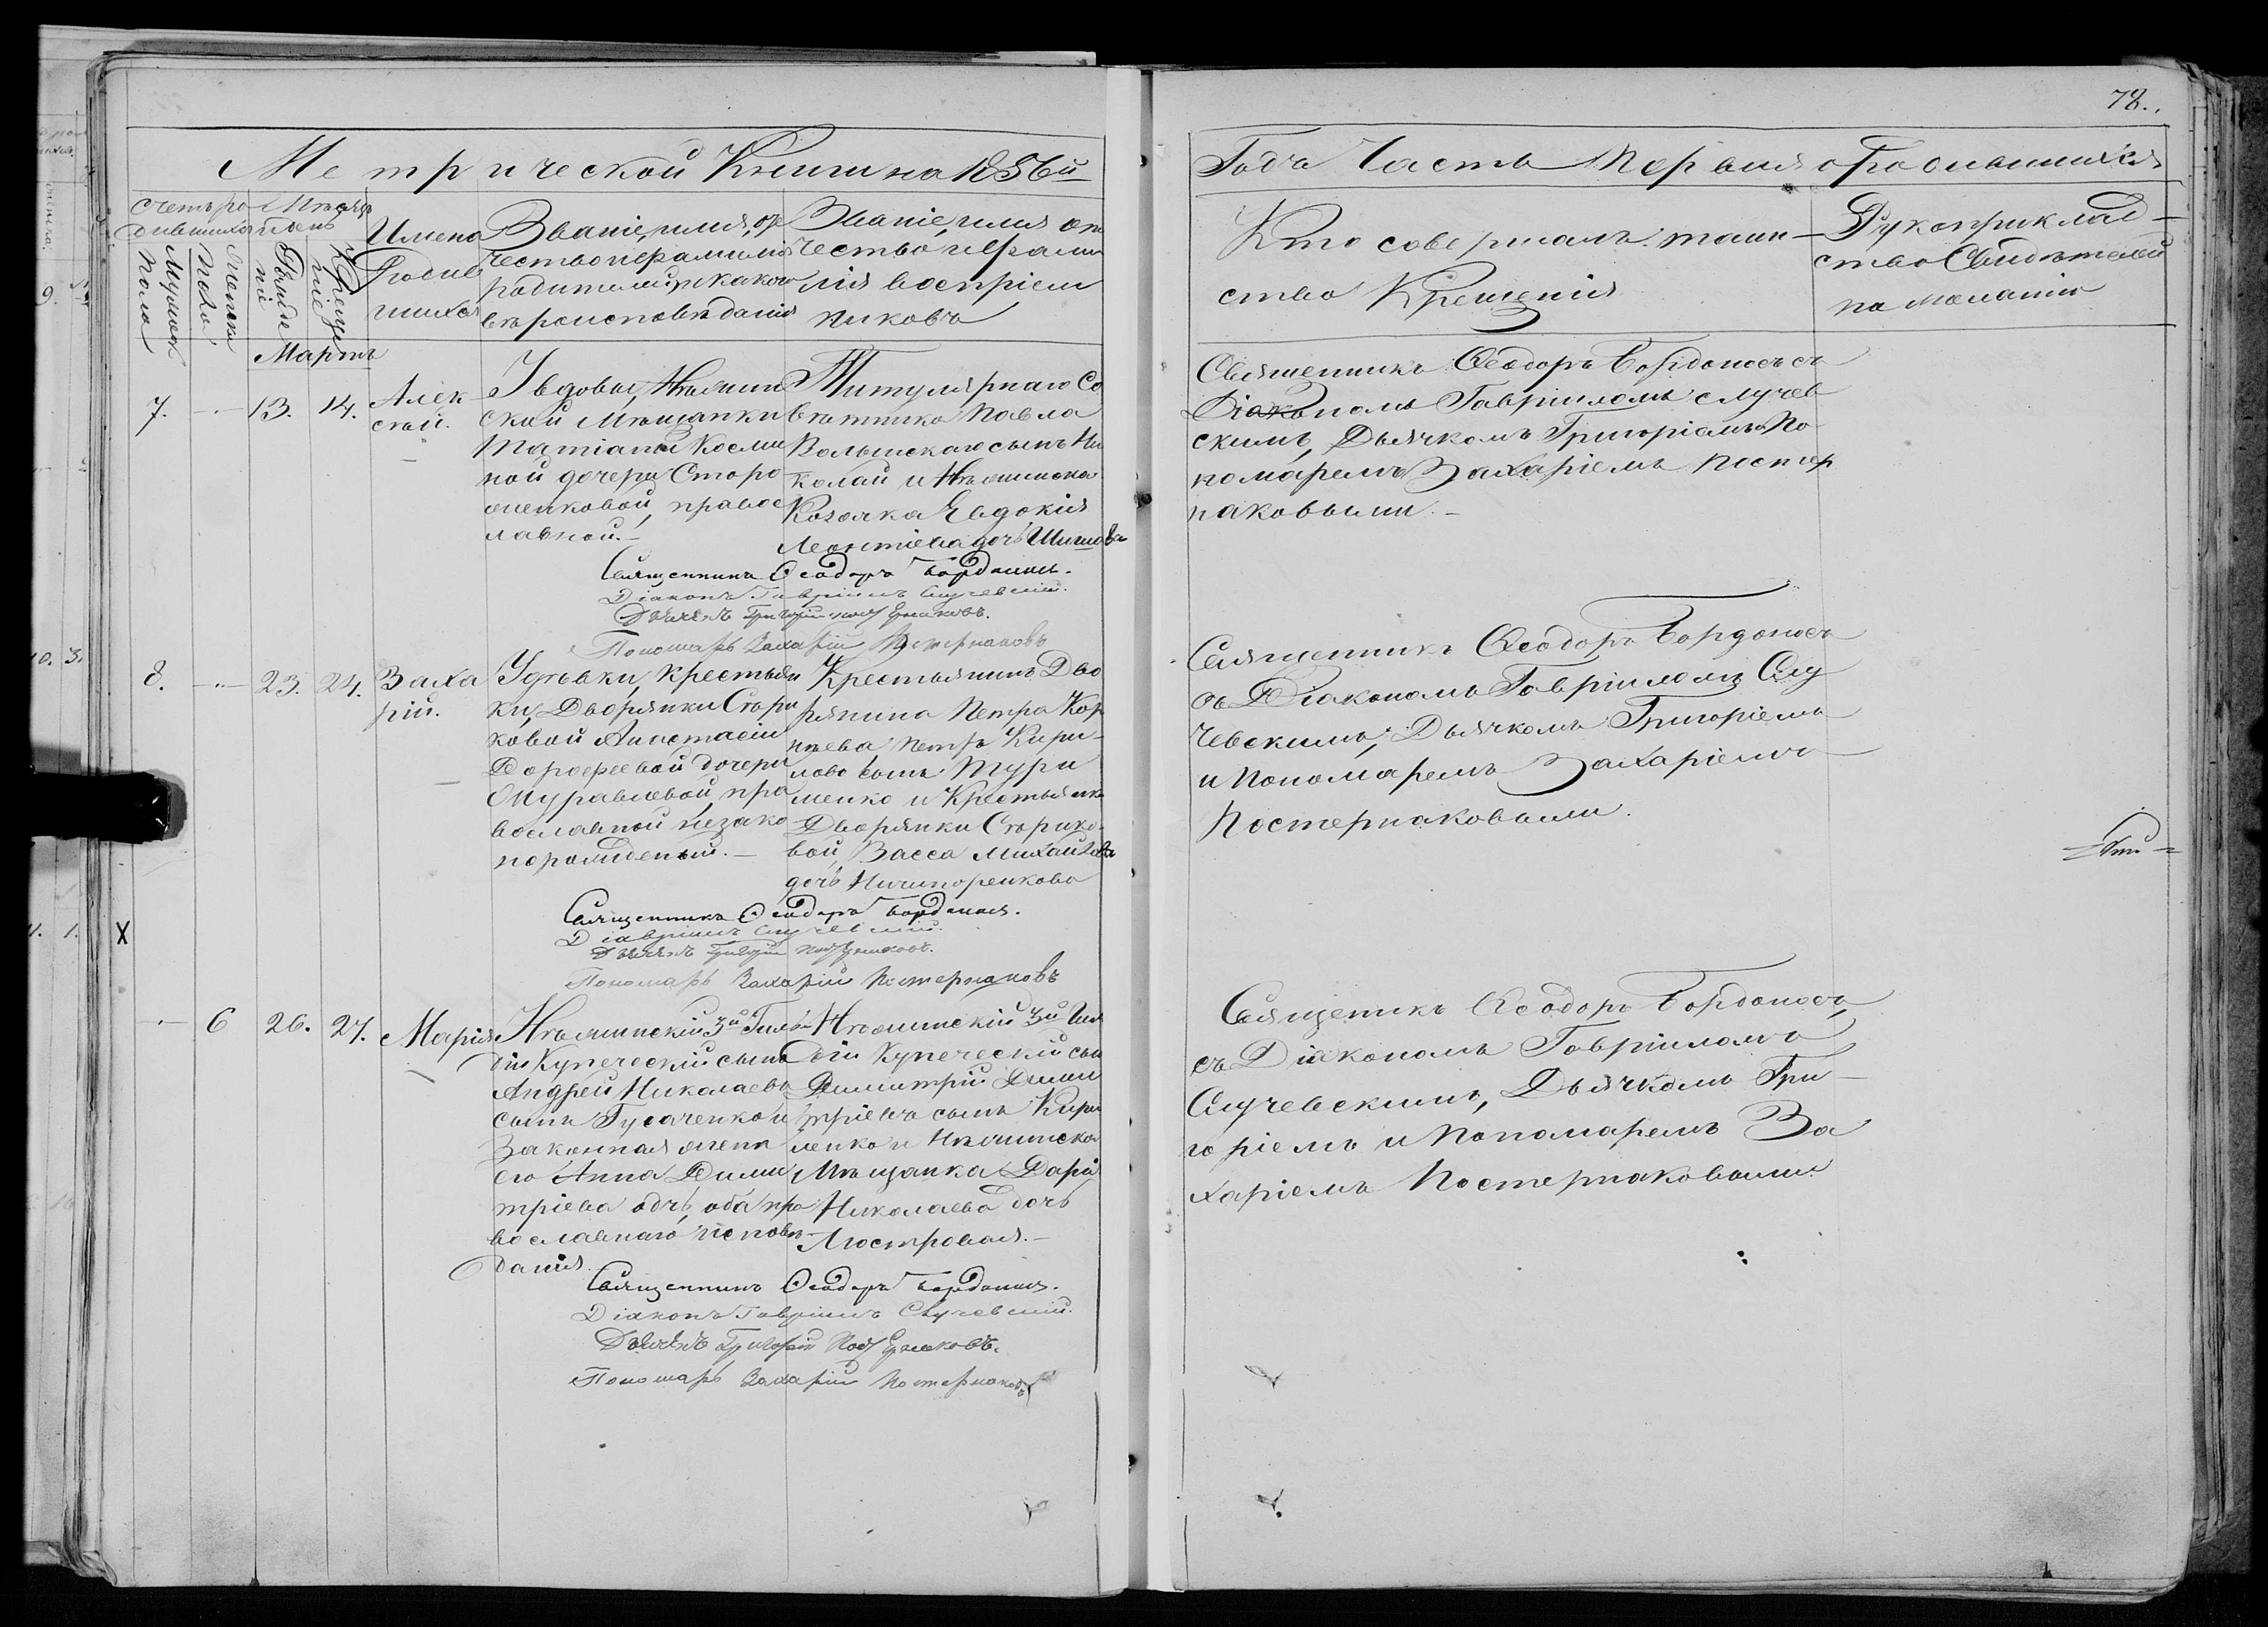 78.
Метрической Книги на 1856й
Года Часть Первая о Родившихся
Счетъ ро-
дившихся
Мужеска
пола
Женска
пола
Мѣсяцъ
и день
Рожде
нія
Креще
нія
Имена
Родив
шихся
Званіе, имя, оте
чество и фамилія
родителей, и какого
вѣроисповѣданія
Званіе, имя, от
чество и фами
лія воспріем
никовъ
Кто совершалъ таин-
ство Крещенія
Рукоприклад-
ство Свидѣтелей
по желанію
Мартъ
7.
13.
14.
Алек
сѣй.
У вдовы, Нѣжин
ской Мѣщанки
Татіаны Косми
ной дочери Сторо
женковой, правос
лавной.-
Титулярнаго Со
вѣтника Павла
Волынскаго сынъ Ни
колай и Нѣжинска
Козачка Евдокія
Леонтіева дочь
Священникъ Ѳеодоръ Бордоносъ съ
Діакономъ Гавріиломъ Случев
скимъ, Дьячкомъ Григоріемъ и По-
номаремъ Захаріемъ Постер
наковыми.-
Священникъ Ѳеодоръ Бордоносъ.
Діаконъ Гавріилъ Случевскій.
Дьячекъ Григорій Постернаковъ.
Пономарь Захарій Постернаковъ
8.
23.
24.
Заха
рій.
У дѣвки, крестьян
ки, Дворянки Стори
ковой Анастасіи
Дорофеевой дочери
Журавлевой, пра
вославной незако
норожденый.-
Крестьянинъ Дво
рянина Петра Кор
нѣева Петръ Кири-
лова сынъ Тури
менко и Крестьянка
Дворянки Сторико-
вой, Васса Михайлова
дочь Ничипоренкова
Священникъ Ѳеодоръ Бордоносъ
съ Діакономъ Гавріиломъ Слу
чевскимъ, Дьячкомъ Григоріемъ
и Пономаремъ Захаріемъ
Постернаковыми.
Священникъ Ѳеодоръ Бордоносъ.
Дьячекъ Григорій Постернаковъ.
Пономарь Захарій Постернаковъ
X
6
26.
27.
Марія
Нѣжинскій 3й Гиль
діи Купеческій сынъ
Андрей Николаевъ
сынъ Гусаченко и
Законная жена
его Анна Дими
тріева дочь, оба пра
вославнаго исповѣ-
данія.
Нѣжинскій 3й Гил
діи Купеческій сын
Димитрій Дими
тріевъ сынъ Кири
ленко и Нѣжинска
Мѣщанка Дарія
Николаева дочь
Мостровая.-
Священикъ Ѳеодоръ Бордоносъ,
съ Діакономъ Гавріиломъ
Случевскимъ, Дьячкомъ Гри-
горіемъ и Пономаремъ За
харіемъ Постернаковыми.
Священникъ Ѳеодоръ Бордоносъ.
Діаконъ Гавріилъ Случевскій.
Дьячекъ Григорій Постернаковъ.
Пономарь Захарій Постернаковъ